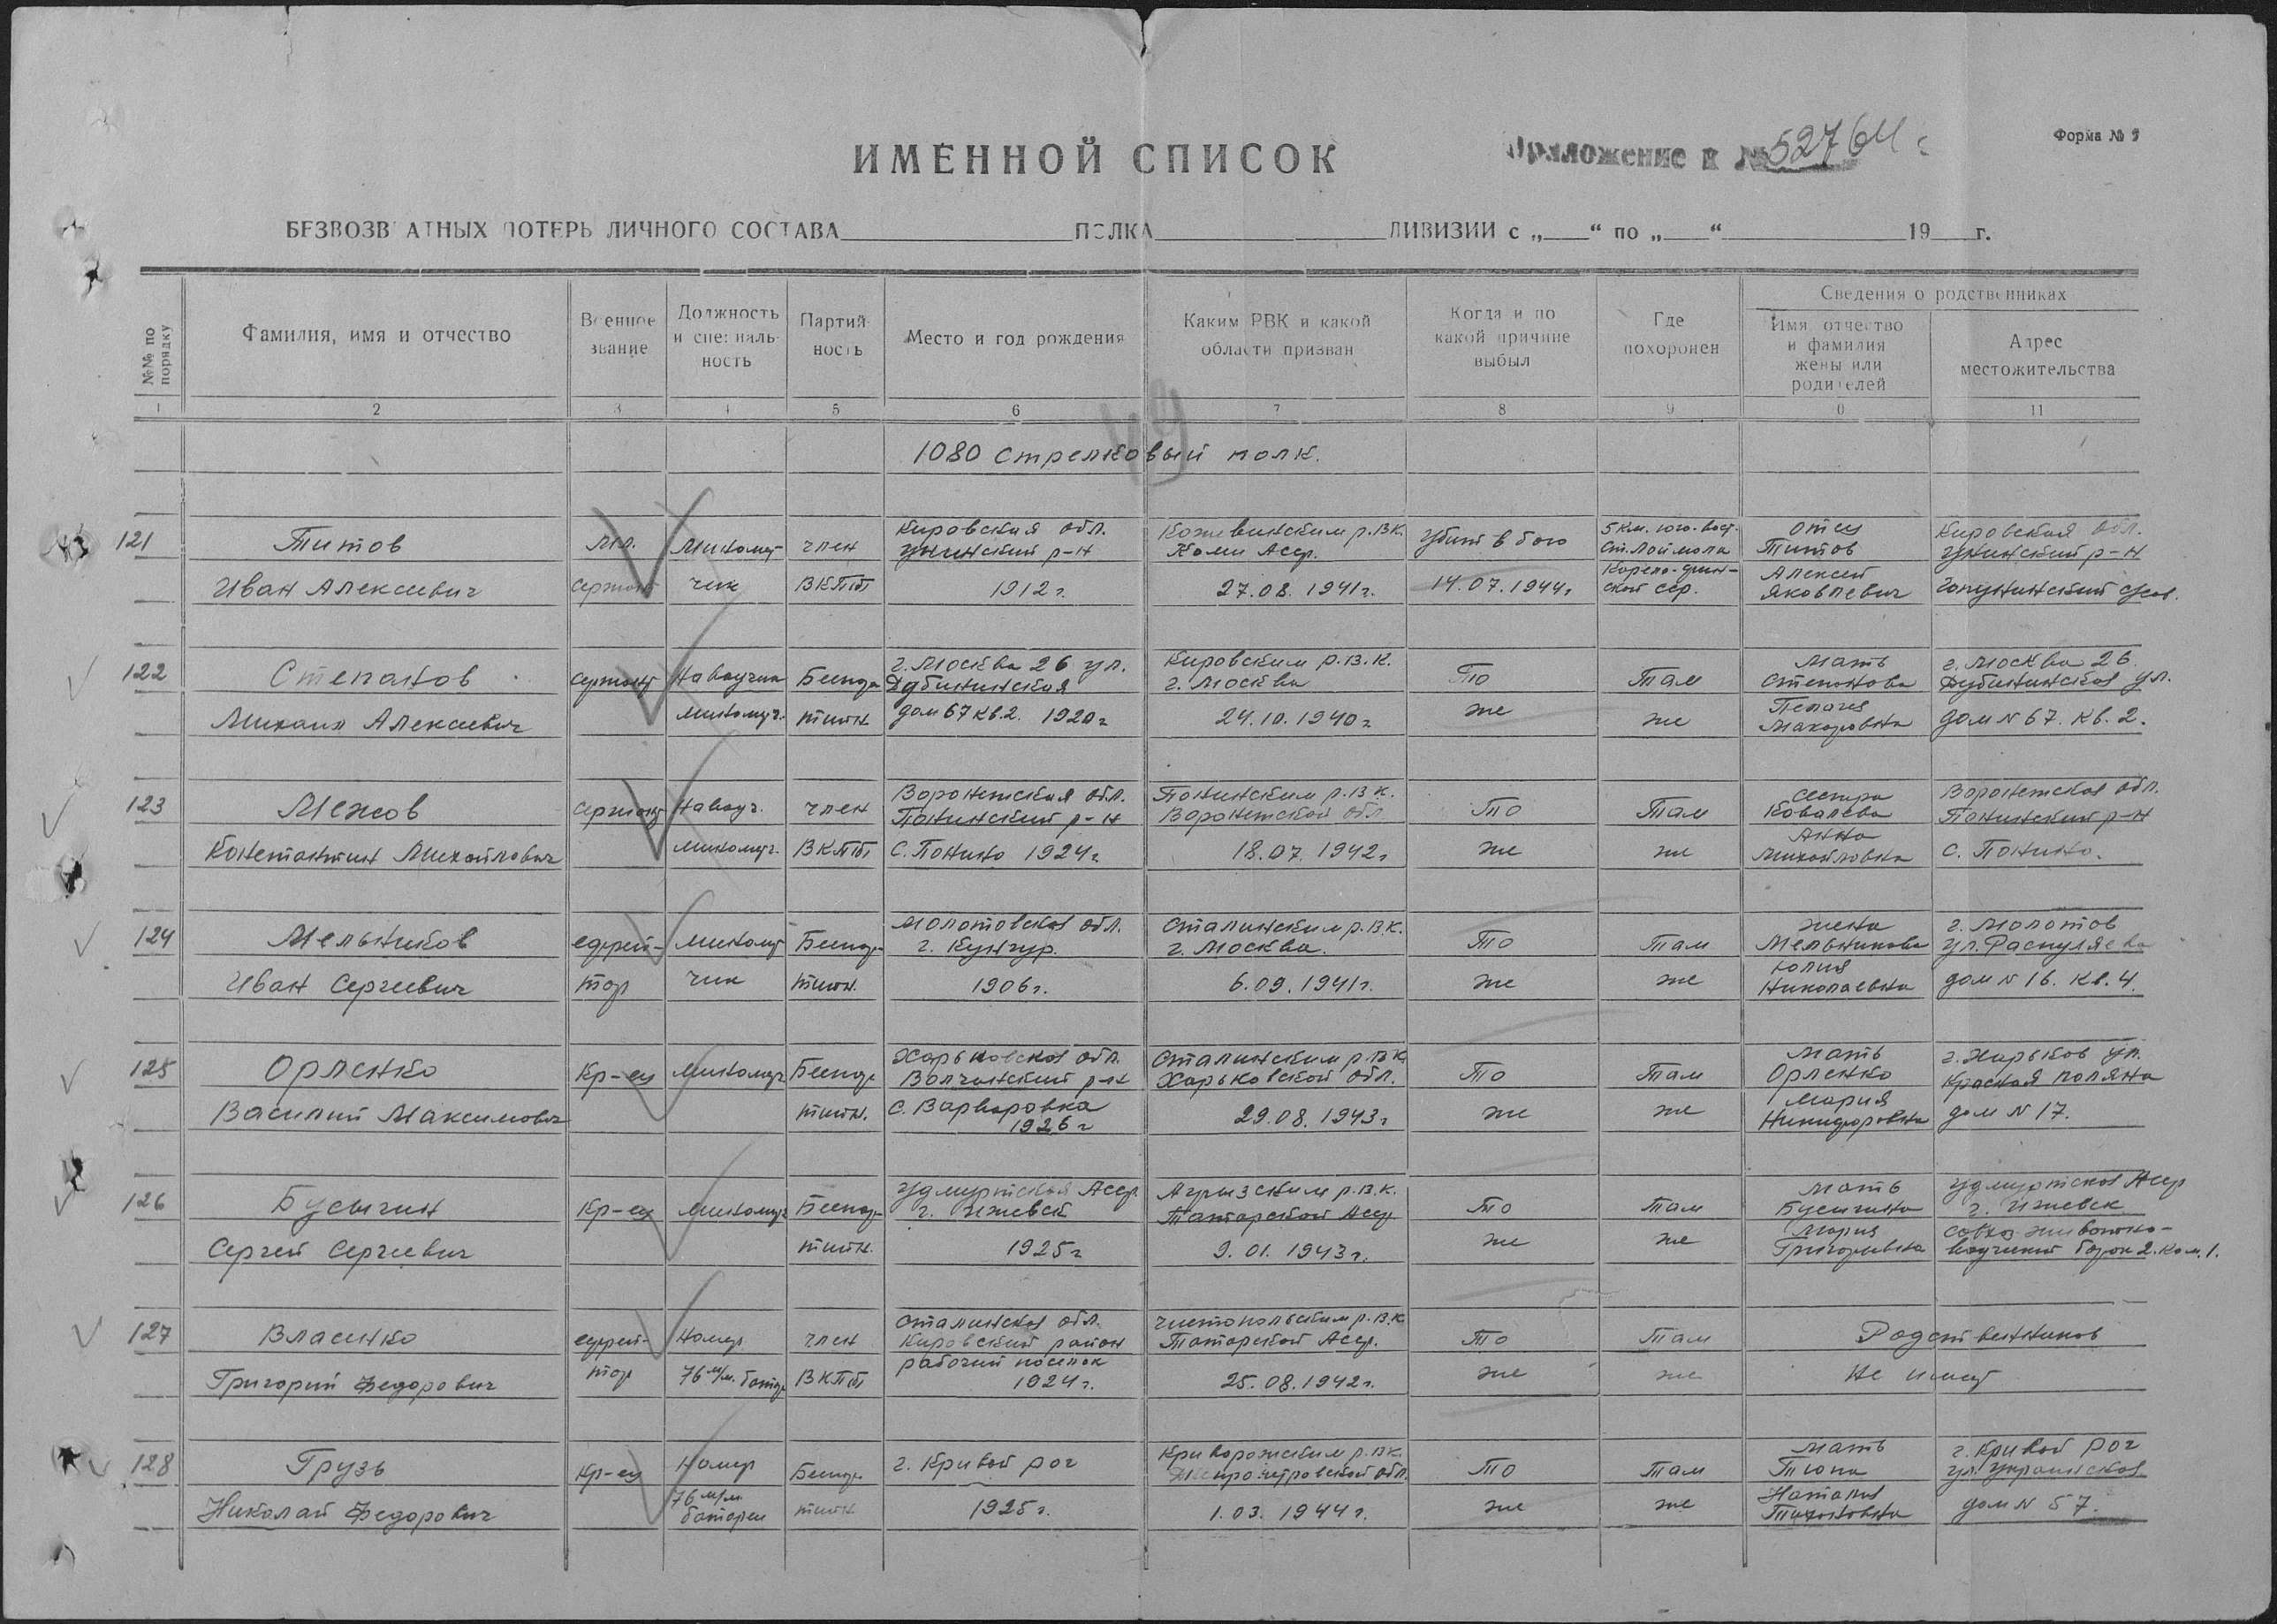 ИМЕННОЙ СПИСОК
Приложение к № 52764 с
Форма № 9
БЕЗВОЗВРАТНЫХ ПОТЕРЬ ЛИЧНОГО СОСТАВА ПОЛКА ДИВИЗИИ с „ “ по „ “ 19 г.
№№ по порядку
Фамилия, имя и отчество
Военное звание
Должность и специаль-
ность
Партий
ность
Место и год рождения
Каким РВК и какой
области призван
Когда и по
какой причине
выбыл
Где
похоронен
Сведения о родственниках
Имя, отчество
и фамилия
жены или
родителей
Адрес
местожительства
1 2 3 4 5 6 7 8 9 0 11
49
1080 стрелковый полк.
121
Титов
Иван Алексеевич
мл.
сержант
Миномет
чик
член
ВКПб
Кировская обл.
Унинский р-н
1912 г.
Кожвинским р.В.К.
Коми Асср.
27.08.1941г.
Убит в бою
14.07.1944г
5 км. юго-вост.
ст. Лоймола
Карело-фин-
ской сср.
отец
Титов
Алексей
Яковлевич
Кировская обл.
Унинский р-н
122
Степанов
Михаил Алексеевич
сержант
Наводчик
миномет.
Беспар
тийн
г. Москва 26 ул.
Дубининская
дом 67 кв.2. 1920г
Кировским р.В.К.
г. Москва
24.10.1940г
То
же
Там
же
Мать
Степанова
Пелагея
Макаровна
г. Москва 26.
Дубининская ул.
дом N 67. кв. 2.
123
Межов
Константин Михайлович
Сержант
Наводч.
миномет.
член
ВКПб
Воронежская обл.
Панинский р-н
С. Панино 1924г
Панинским р.В.К.
Воронежской обл
18.07.1942г
То
же
Там
же
Сестра
Ковалева
Анна
Михайловна
Воронежская обл.
Панинский р-н
С. Панино.
124
Мельников
Иван Сергеевич
ефрей-
тор
миномет
чик
Беспар
тийн.
Молотовская обл.
г. Кунгур.
1906г.
Сталинским р.В.К.
г. Москва.
6.09.1941г.
То
же
Там
же
жена
Мельникова
Юлия
Николаевна
г. Молотов
ул. Распуляева
дом N 16. кв. 4.
125
Орленко
Василий Максимович
Кр-ец
миномет
Беспар
тийн.
Харьковская обл.
Волчанский р-н
с. Варваровка
1926г
Сталинским р.В.К
Харьковской обл.
29.08.1943г
То
же
Там
же
Мать
Орленко
Мария
Никифоровна
г. Харьков ул.
Красная поляна
дом N 17.
126
Бусыгин
Сергей Сергеевич
Кр-ец
миномет
Беспар
тийн.
Удмуртская Асср.
г. Ижевск
1925г
Агрызским р.В.К.
Татарской Асср
9.01.1943г.
То
же
Там
же
Мать
Бусыгина
Мария
Григорьевна
Удмуртская Асср
г. Ижевск
127
Власенко
Григорий Федорович
ефрей-
тор
Номер
76 м/м. батар
член
ВКПб
Сталинская обл.
Кировский район
рабочий поселок
1924г.
Чистопольским р.В.К
Татарской Асср.
25.08.1942г.
То
же
Там
же
Родственников
не имеет
128
Грузь
Николай Федорович
Кр-ец
Номер
76 м/м
батареи
Беспар
тийн
г. Кривой рог
1925г.
Криворожским р.В.К.
Днепропетровской обл.
1.03.1944г.
То
же
Там
же
Мать
Наталия
Тихоновна
г. Кривой рог
ул. Украинская
дом N 57.